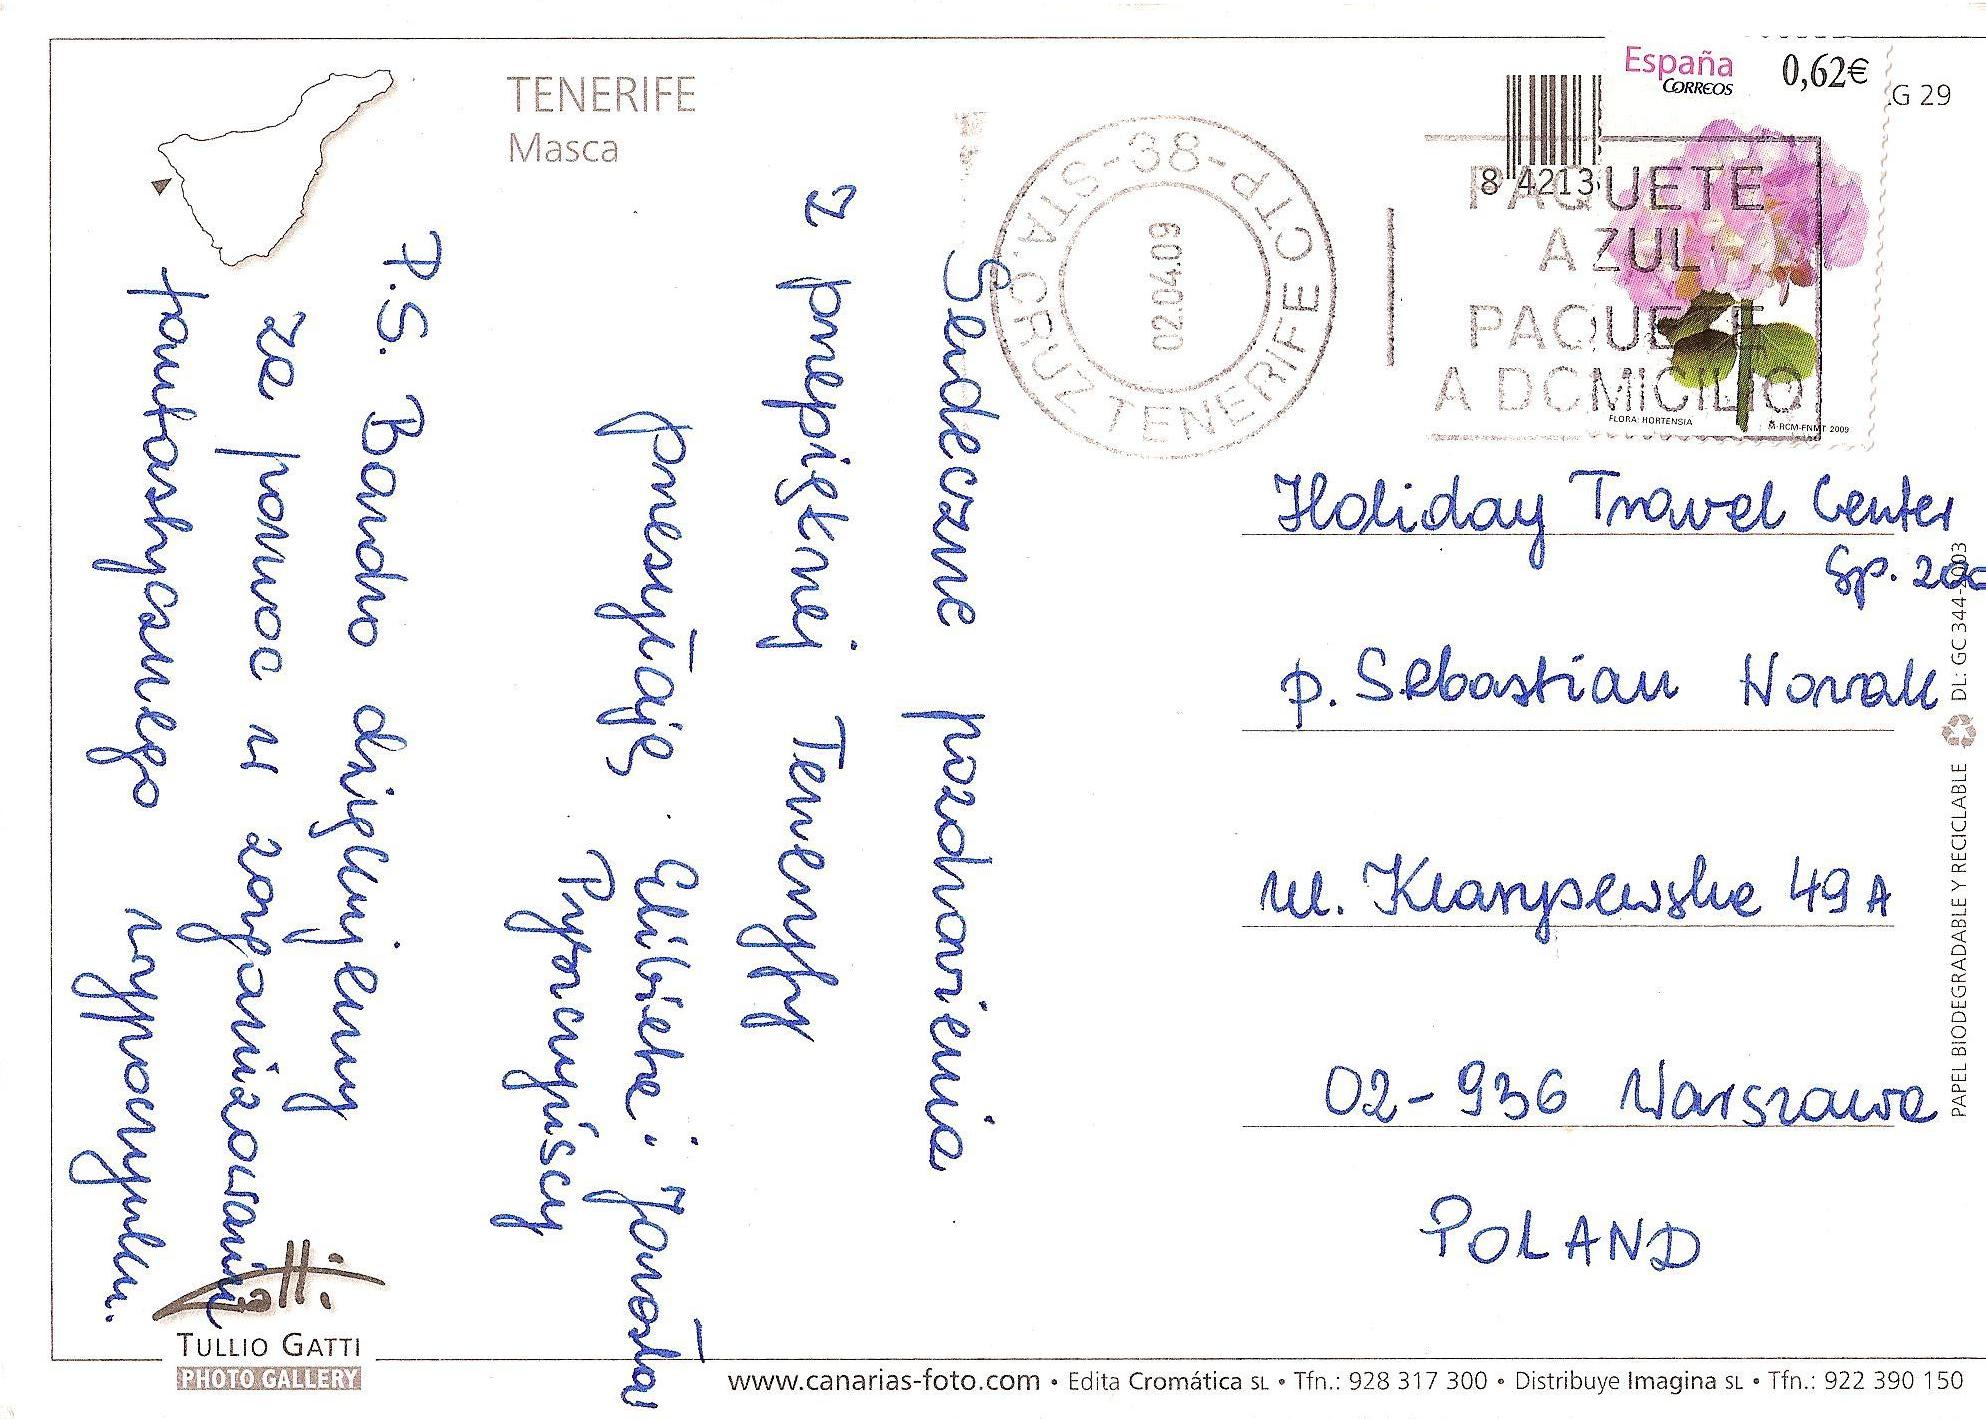 TENERIFE
Masca
Serdeczne pozdrowienia
z przepięknej Teneryfy
przesyłają Elżbieta i Jarosław
Przyborczyńscy
P.S. Bardzo dziękujemy
za pomoc w zorganizowaniu
fantastycznego wypoczynku.
España
CORREOS
0,62€
G 29
8 4213
STA. CRUZ TENERIFE CTP -38-
02.04.09
PAQUETE
AZUL
PAQUETE
A DOMICILIO
FLORA: HORTENSIA
RCM-FNMT 2009
Holiday Travel Center
Sp. zoo
p. Sebastian Nowak
ul. 49A
02-936 Warszawa
POLAND
PAPEL BIODEGRADABLE Y RECICLABLE DL: GC 344-2003
Gatti
TULLIO GATTI
PHOTO GALLERY
www.canarias-foto.com • Edita Cromática SL • Tfn.: 928 317 300 • Distribuye Imagina SL • Tfn.: 922 390 150